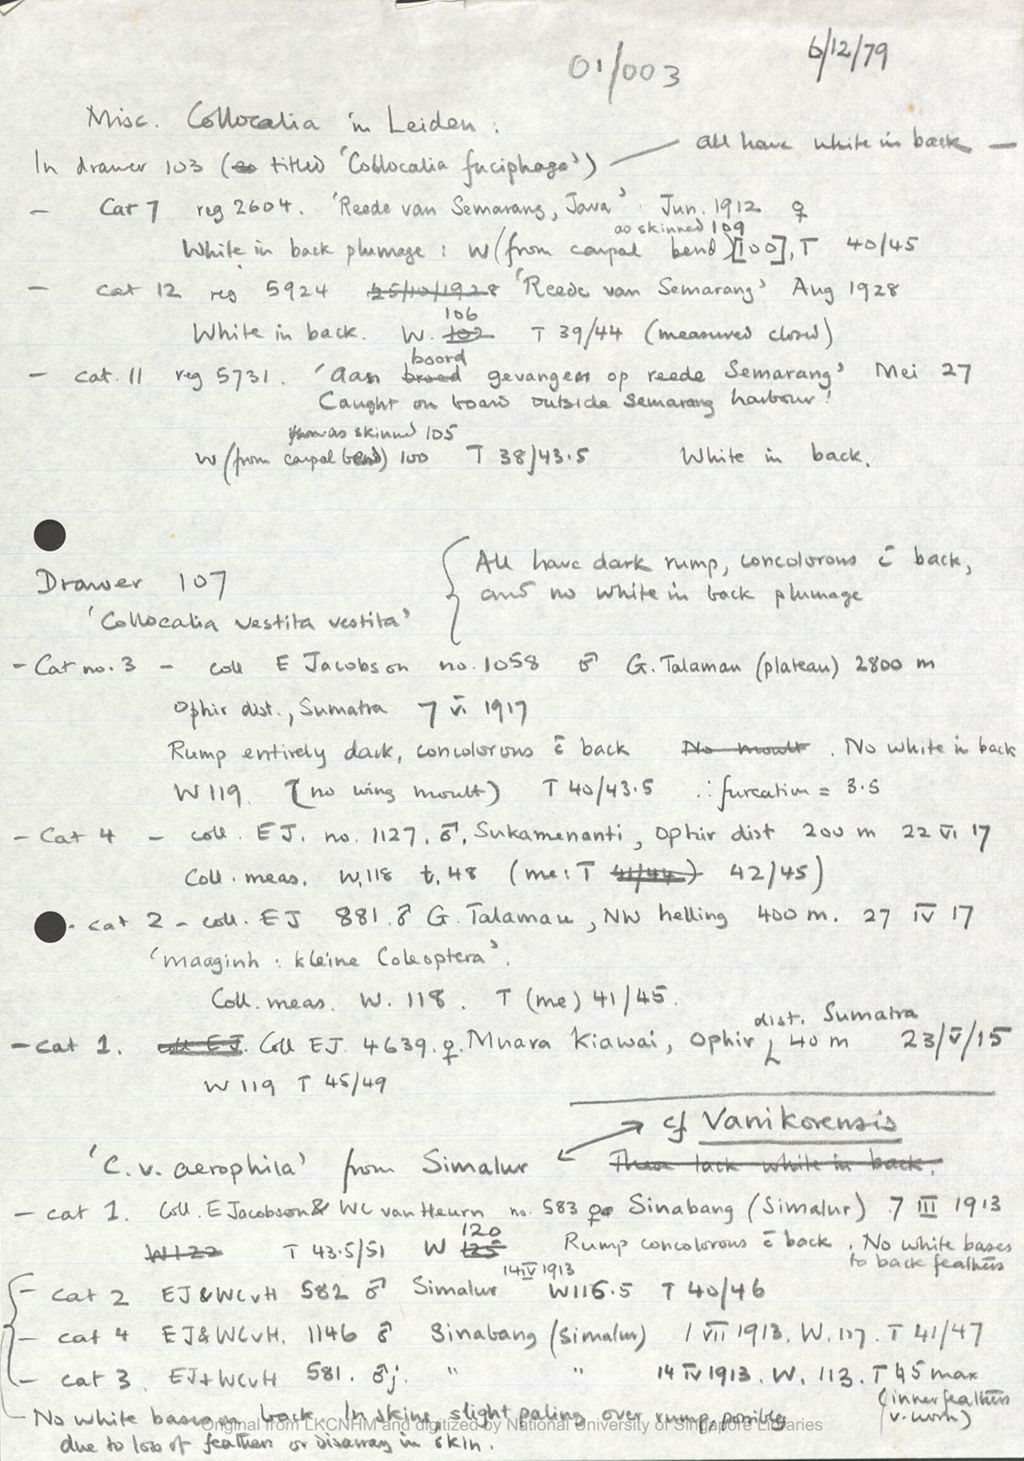 01/003
6/12/79
Misc. Collocalia in Leiden:
In drawer 103 (so titled 'Collocalia fuciphaga') — all have white in back —
— Cat 7 reg 2604. 'Reede van Semarang, Java' Jun. 1912 ♀
as skinned 109
White in back plumage: W (from carpal bend) [100], T 40/45
— cat 12 reg 5924 25/10/1928 'Reede van Semarang' Aug 1928
106
White in back. W. 102 T 39/44 (measured closed)
boord
— cat. 11 reg 5731. 'Aan broed gevangen op reede Semarang' Mei 27
Caught on board outside Semarang harbour!
as skinned 105
W (from carpal bend) 100 T 38/43.5 White in back.
Drawer 107
'Collocalia vestita vestita'
{ All have dark rump, concolorous c̄ back,
and no white in back plumage
— Cat no. 3 — coll E Jacobson no. 1058 ♂ G. Talamau (plateau) 2800 m
Ophir dist., Sumatra 7 VI 1917
Rump entirely dark, concolorous c̄ back No moult. No white in back
W 119. (no wing moult) T 40/43.5 ∴ furcation = 3.5
— Cat 4 — coll. EJ. no. 1127. ♂, Sukamenanti, Ophir dist 200 m 22 VI 17
Coll. meas. W. 118 t. 48 (me: T 41/44) 42/45)
- cat 2 - coll. EJ 881. ♂ G. Talamau, NW helling 400 m. 27 IV 17
'maaginh: kleine Coleoptera'.
Coll. meas. W. 118. T (me) 41/45.
dist. Sumatra
— cat 1. coll EJ. Coll EJ. 4639. ♀. Muara Kiawai, Ophir 40 m 23/V/15
W 119 T 45/49
cf Vanikorensis
'C. v. aerophila' from Simalur These lack white in back.
— cat 1. Coll. E Jacobson & WC van Heurn no. 583 ♀ Sinabang (Simalur) 7 III 1913
120
W 122 T 43.5/51 W 125 Rump concolorous c̄ back. No white bases
to back feathers
14 IV 1913
— cat 2 EJ & WCvH 582 ♂ Simalur W 116.5 T 40/46
— cat 4 EJ & WCvH. 1146 ♂ Sinabang (Simalur) 1 VII 1913. W. 117. T 41/47
— cat 3. EJ + WCvH 581. ♂ j. " " 14 IV 1913. W. 113. T 45 max
(inner feathers
v. worn)
No white bases on back. In skins, slight paling over rump, possibly
due to loss of feathers or disarray in skin.
Original from LKCNHM and digitized by National University of Singapore Libraries